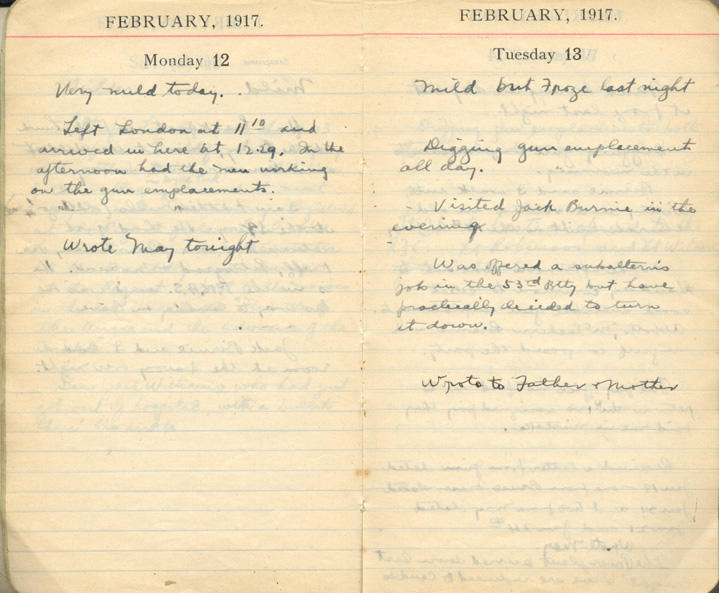 FEBRUARY, 1917.
Monday 12
Very mild today.
Left London at 11 10 and
arrived in here at 12.29. In the
afternoon had the men working
on the gun emplacements.
Wrote May tonight
FEBRUARY, 1917.
Tuesday 13
Mild but Froze last night
Digging gun emplacements
all day.
Visited Jack Burnie in the
evening
Was offered a subalterns
job in the 53rd Btty but have
practically decided to turn
it down.
Wrote to Father & Mother